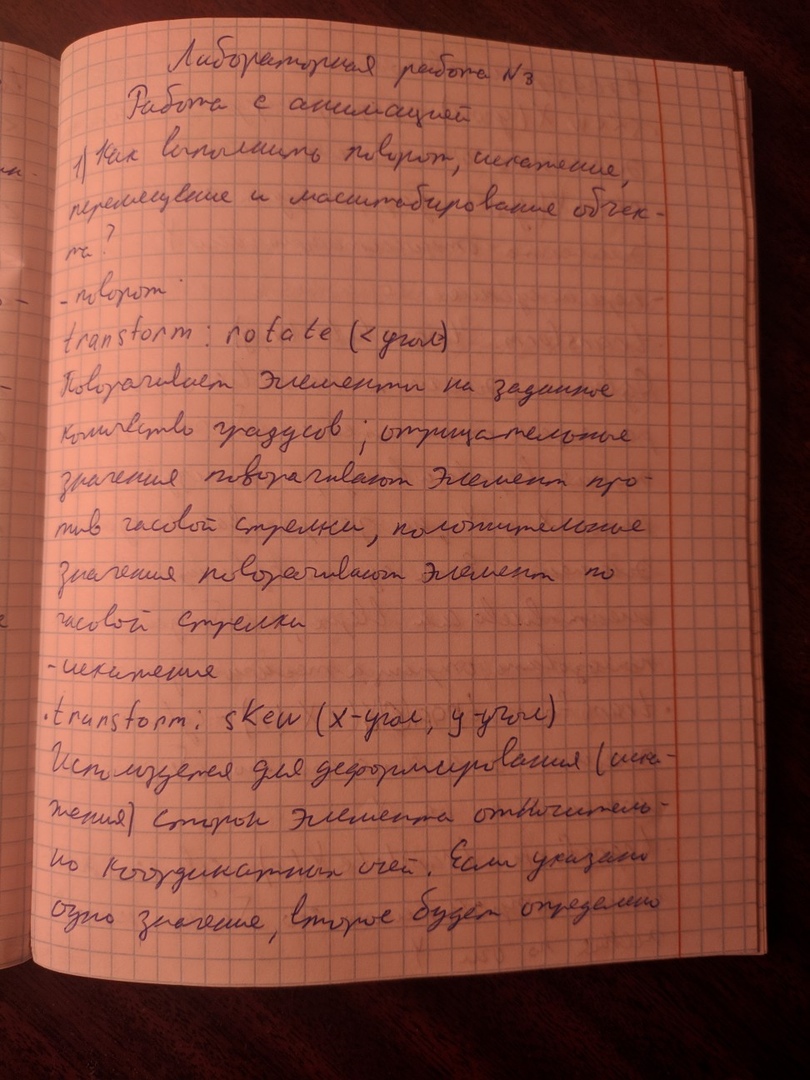 Лабораторная работа №3
Работа с анимацией
1) Как выполнить поворот, искажение,
перемещение и масштабирование объек-
та?
- поворот
transform: rotate (<угол>)
Поворачивает элементы на заданное
количество градусов; отрицательные
значения поворачивают элемент про-
тив часовой стрелки, положительные
значения поворачивают элемент по
часовой стрелки
- искажение
.transform: skew (x-угол, y-угол)
Используется для деформирования (иска-
жения) сторон элемента относитель-
но координатных осей. Если указано
одно значение, второе будет определено